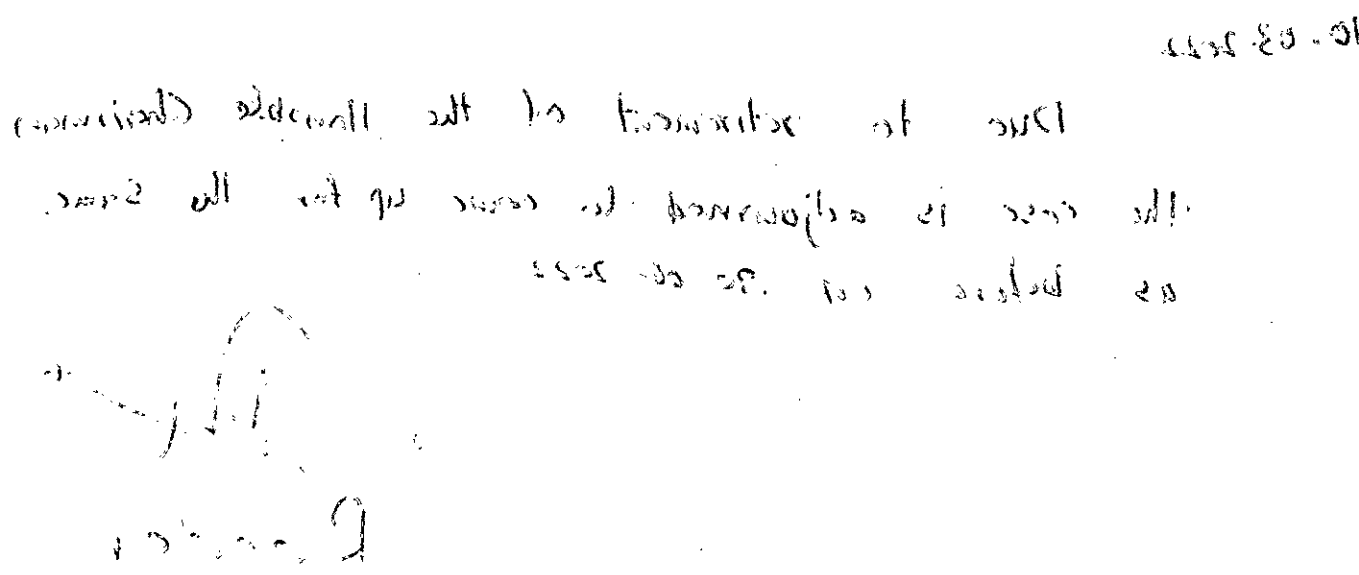 10.03.2022
Due to retirement of the Honable Chairman
the case is adjourned to come up for the same.
as before on 30-06-2022
Reader